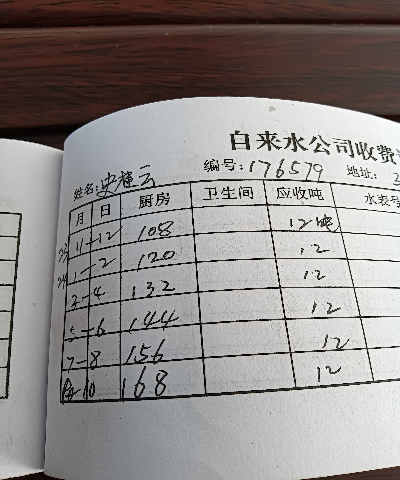 自来水公司收费
姓名: 史桂云 编号: 176579 地址: 3
月 日 厨房 卫生间 应收吨 水表号
23 11-12 108 12吨
24 1-2 120 12
3-4 132 12
5-6 144 12
7-8 156 12
9-10 168 12